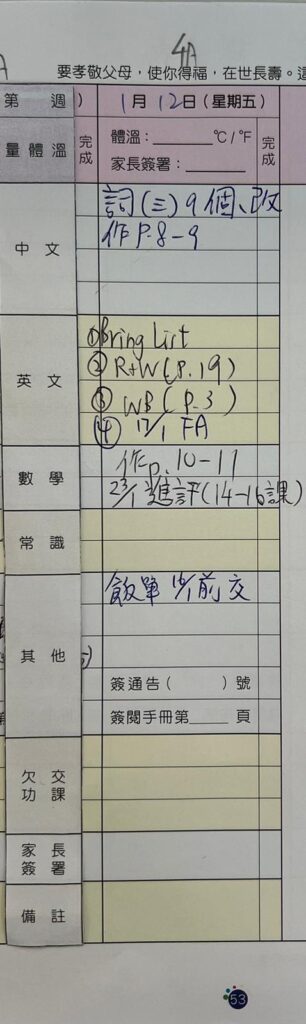 4A
要孝敬父母，使你得福，在世長壽。這
第 週 ) 1月12日(星期五)
量體溫 完成 體溫：______°C/°F 完成
家長簽署：______
中文 詞(三)9個、改
作 P.8-9
英文 ①Bring List
② R+W (P.19)
③ WB (P.3)
④ 17/1 FA
數學 作p.10-11
23/1 進評(14-16課)
常識
其他 飯單 前交
簽通告( )號
簽閱手冊第______頁
欠交功課
家長簽署
備註
53